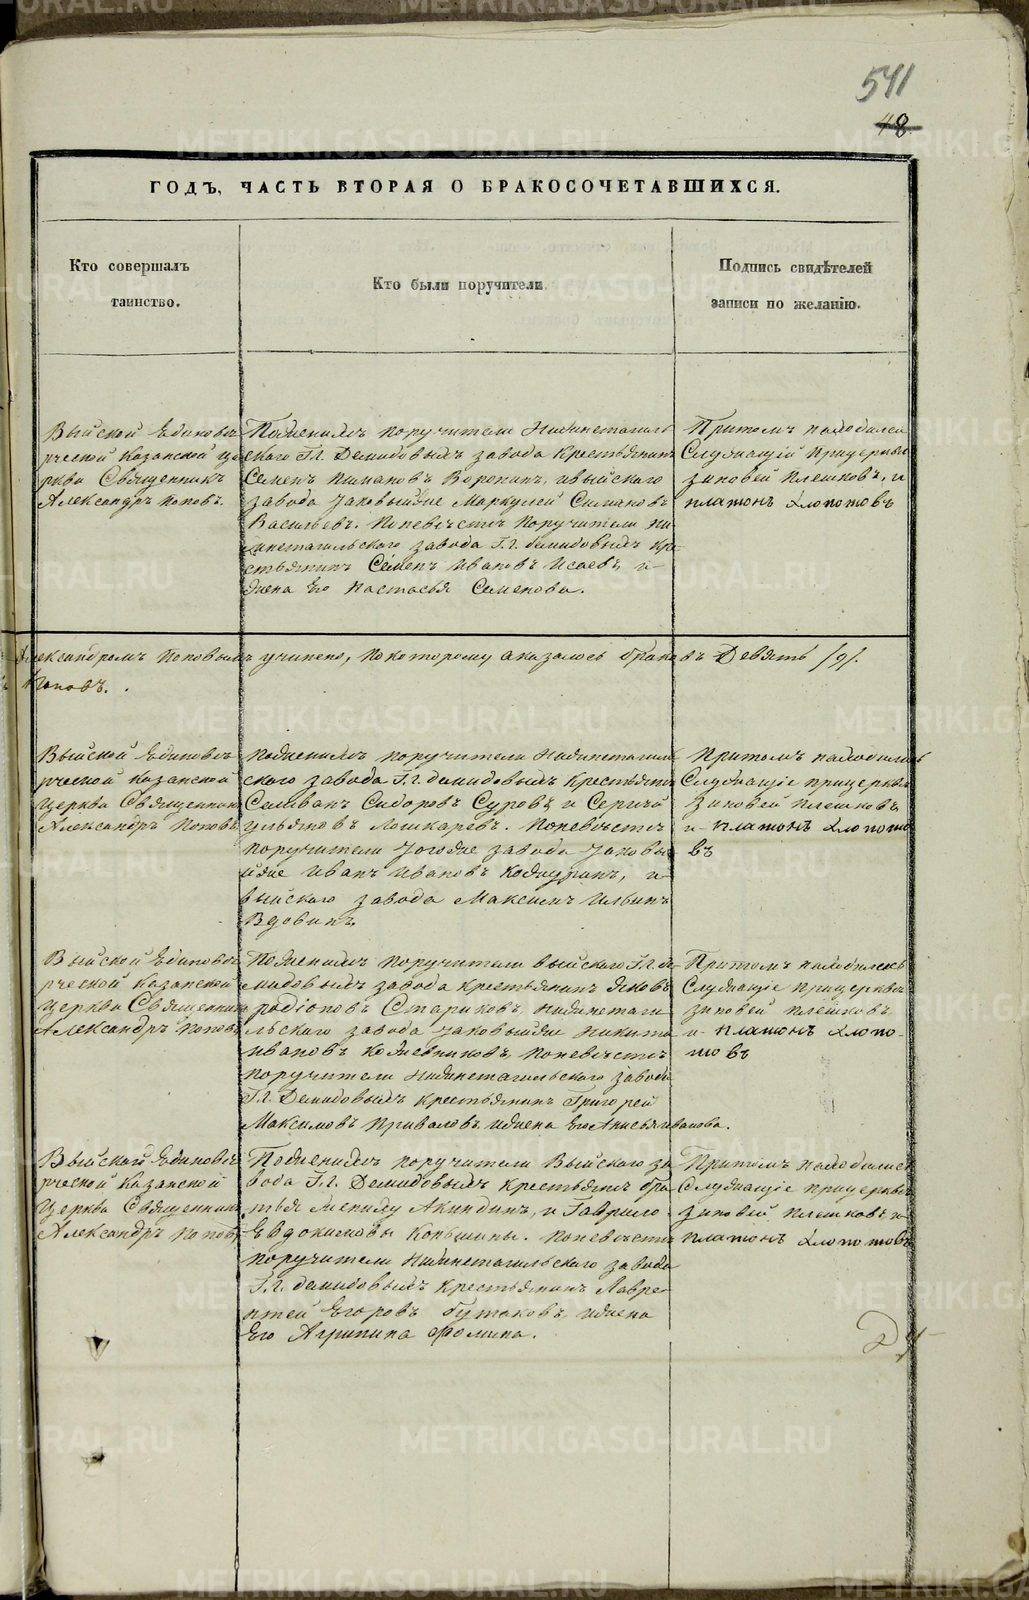 541
48
ГОДЪ, ЧАСТЬ ВТОРАЯ О БРАКОСОЧЕТАВШИХСЯ.
Кто совершалъ
таинство.
Кто были поручители.
Подпись свидѣтелей
записи по желанію.
Выйской Единовѣ
рческой Казанской це
ркви Священникъ
Александръ Поповъ.
Поженихѣ поручители Нижнетагиль
скаго Гг. Демидовыхъ завода Крестьянинъ
Семенъ Воронинъ, ивыйскаго
завода
Васильевъ. Поневѣстѣ Поручители Ни
жнетагильскаго завода Гг. демидовыхъ кре
стьянинъ Семенъ Ивановъ Исаевъ, и
жена Его Настасья Семенова.
Притомъ находились
Служащіе прицеркви
зиновей Плешковъ, и
платонъ Хлопотовъ
Александромъ Поповымъ учинено, покоторому оказалось браковъ Девять /9/.
Поповъ.
Выйской Единовѣ
рческой Казанской
Церкви Священникъ
Александръ Поповъ
Поженихѣ поручители Нижнетагиль
скаго завода Гг. демидовыхъ Крестьяне
Селиванъ Сидоровъ Суровъ, и Сергѣй
ульяновъ Лошкаревъ. Поневѣстѣ
поручители завода
Иванъ Ивановъ и
выйскаго завода Максимъ Ильинъ
Вдовинъ.
Притомъ находились
Служащіе прицеркви
Зиновей Плешковъ
и платонъ Хлопото
въ
Выйской Единовѣ
рческой Казанской
Церкви Священникъ
Александръ Поповъ
Поженихѣ поручители выйскаго Гг. де
мидовыхъ завода крестьянинъ Яковъ
родіоновъ Стариковъ, нижнетаги
льскаго завода Никита
Ивановъ Кожевниковъ, Поневѣстѣ
поручители Нижнетагильскаго завода
Гг. Демидовыхъ крестьянинъ Григорей
Максимовъ Приваловъ, ижена Его Анисья иванова.
Притомъ находились
Служащіе прицеркви
зиновей плешковъ
и платонъ Хлопо
товъ
Выйской Единовѣ
рческой Казанской
Церкви Священникъ
Александръ Поповъ
Поженихѣ поручители Выйскаго за
вода Гг. Демидовыхъ крестьяне бра
тья Акиндинъ, и Гаврило
Евдокимовы Копыловы. Поневѣстѣ
поручители Нижнетагильскаго завода
Гг. демидовыхъ крестьянинъ Лавре
нтей Егоровъ Бутаковъ, ижена
Его Агрипина Фомина.
Притомъ находились
Служащіе прицеркви
зиновей Плешковъ и
платонъ Хлопотовъ